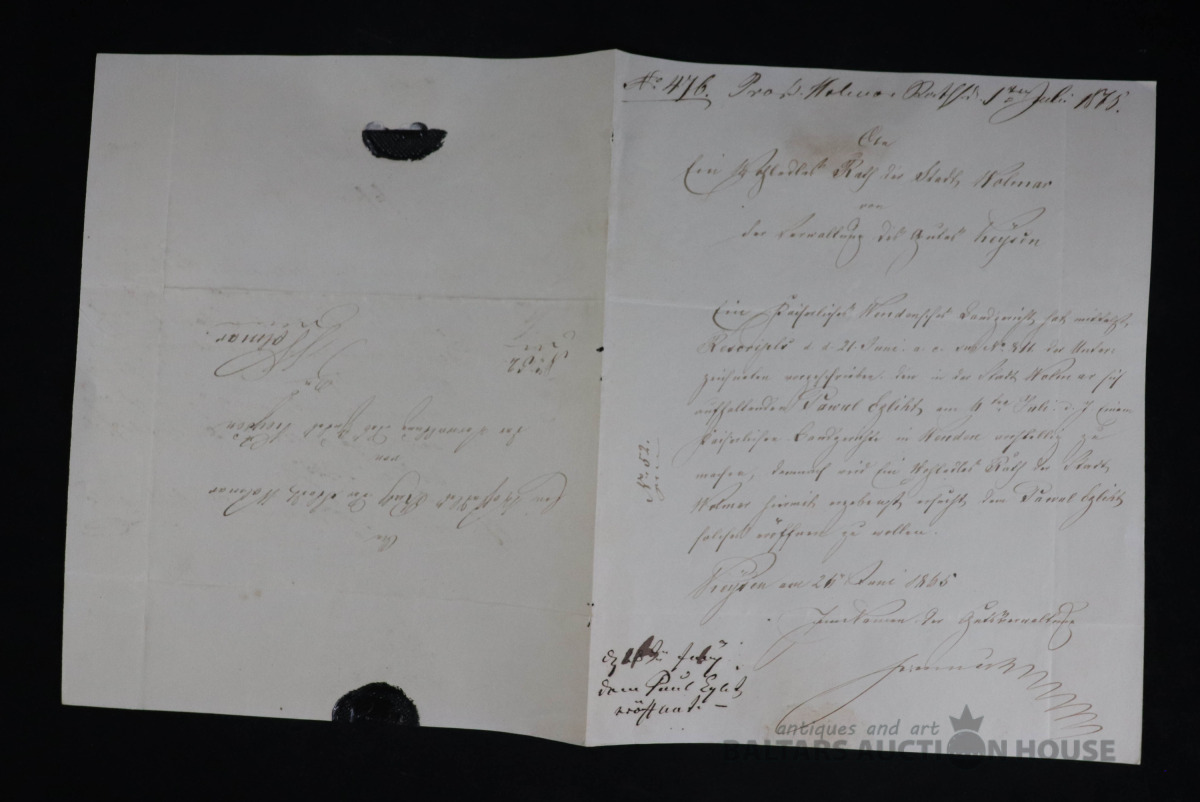 No 476. Prod. Wolmar Raths. 1ten Juli 1875.
An
Ein Wohledler Rath der Stadt Wolmar
von
der Verwaltung des Gutes
Ein Kaiserliches Wendensches Landgericht hat mittelst
Rescripts d. d. 21. Juni a. c. sub No 811 der Unter-
zeichneten vorgeschrieben, den in der Stadt Wolmar sich
aufhaltenden Pawul Egliht am 9ten Juli d. J. Einem
Kaiserlichen Landgerichte in Wenden vorstellig zu
machen, demnach wird Ein Wohledler Rath der Stadt
Wolmar hiermit ergebenst ersucht, dem Pawul Egliht
solches eröffnen zu wollen.
am 26 Juni 1865
Im Namen der Gutsverwaltung
No 52.
dem Paul Eglit
eröffnet. —
An
Einen Wohledlen Rath der Stadt Wolmar
von
der Verwaltung des Gutes
Wolmar.
No 52
antiques and art
BALTARS AUCTION HOUSE